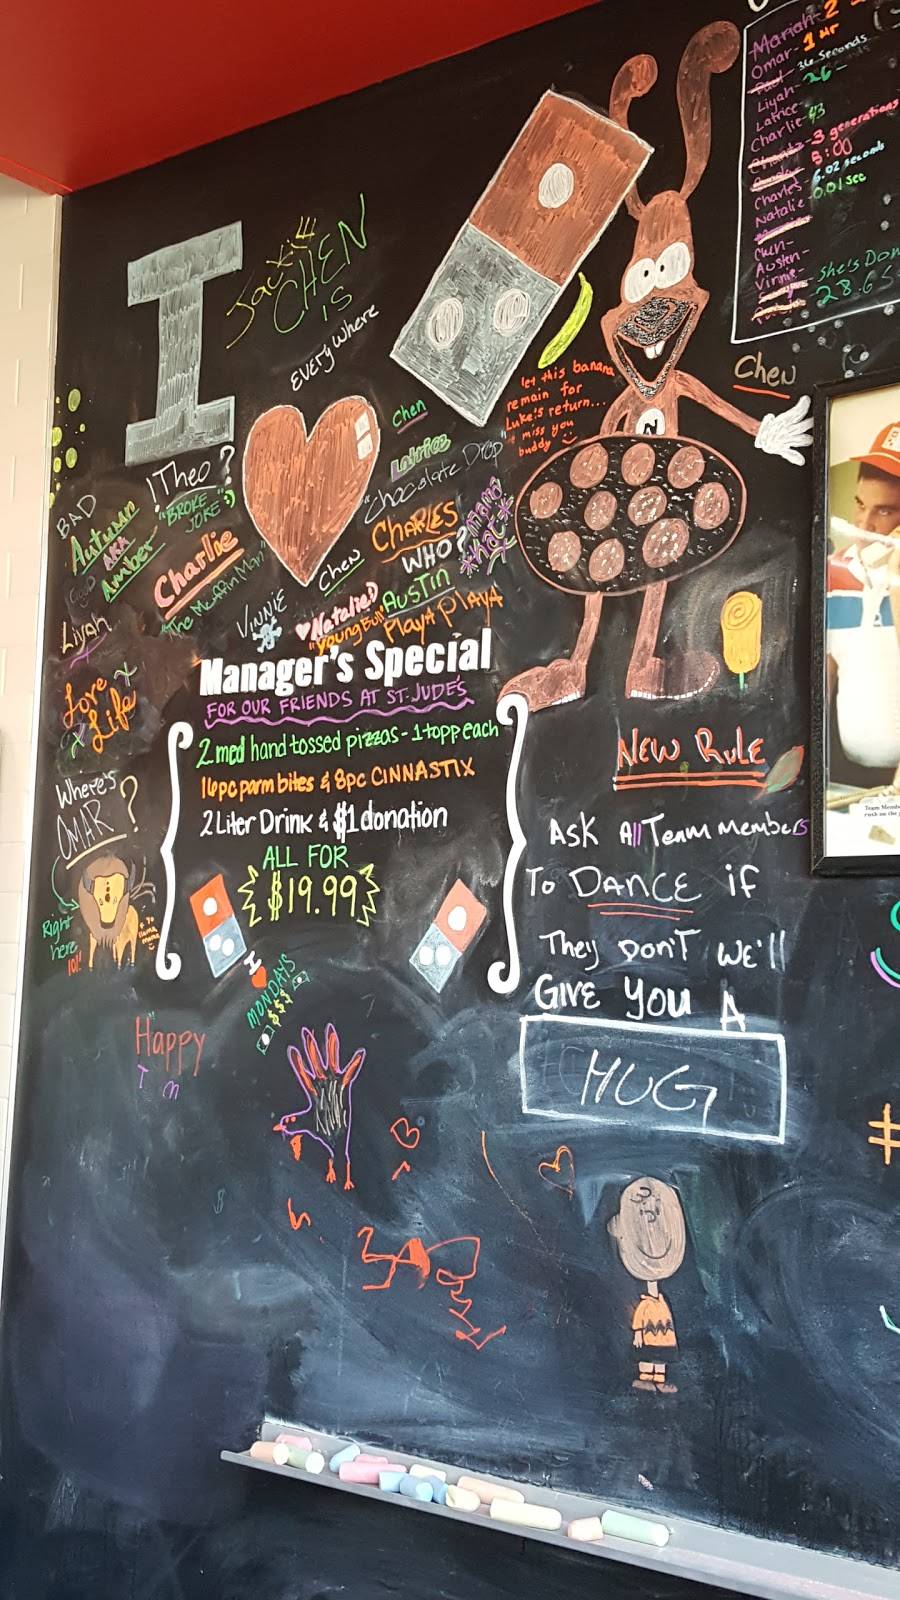 Mariah - 2
Omar - 1 Hr
Paul - 36 Seconds
Liyah - 26 -
Latrice -
Charlie 43
- 3 generations
- 5:00
Charles - 6.02 seconds
Natalie - 0.01 sec
Chen -
Austin -
Vinnie -
She's Don
28.6 S
I
JACKIE
CHEN
is
EVERYwhere
let this banana
remain for
Luke's return...
i miss you
buddy
N
Chen
Chen
Latrice
"Chocolate Drop"
!Theo?
"BROKE
JOKE"
BAD
Autumn
AKA
Good
Amber
Charlie
"The Muffin Man"
CHARLES
WHO?
Chen
Liyah
VINNIE
Natalie
"Young Bul"
AUSTIN
PlayA PlayA
Love
Life
Manager's Special
FOR OUR FRIENDS AT ST. JUDE'S
2 med hand tossed pizzas - 1 topp each
16pc parm bites & 8pc CINNASTIX
2 Liter Drink & $1 donation
ALL FOR
$19.99
I
MONDAYS
$$$
Where's
OMAR?
Right
here
lol!
NEW RULE
ASK All Team Members
To DANCE if
They DON'T we'll
GIVE You A
HUG
Happy
#
Team Membe